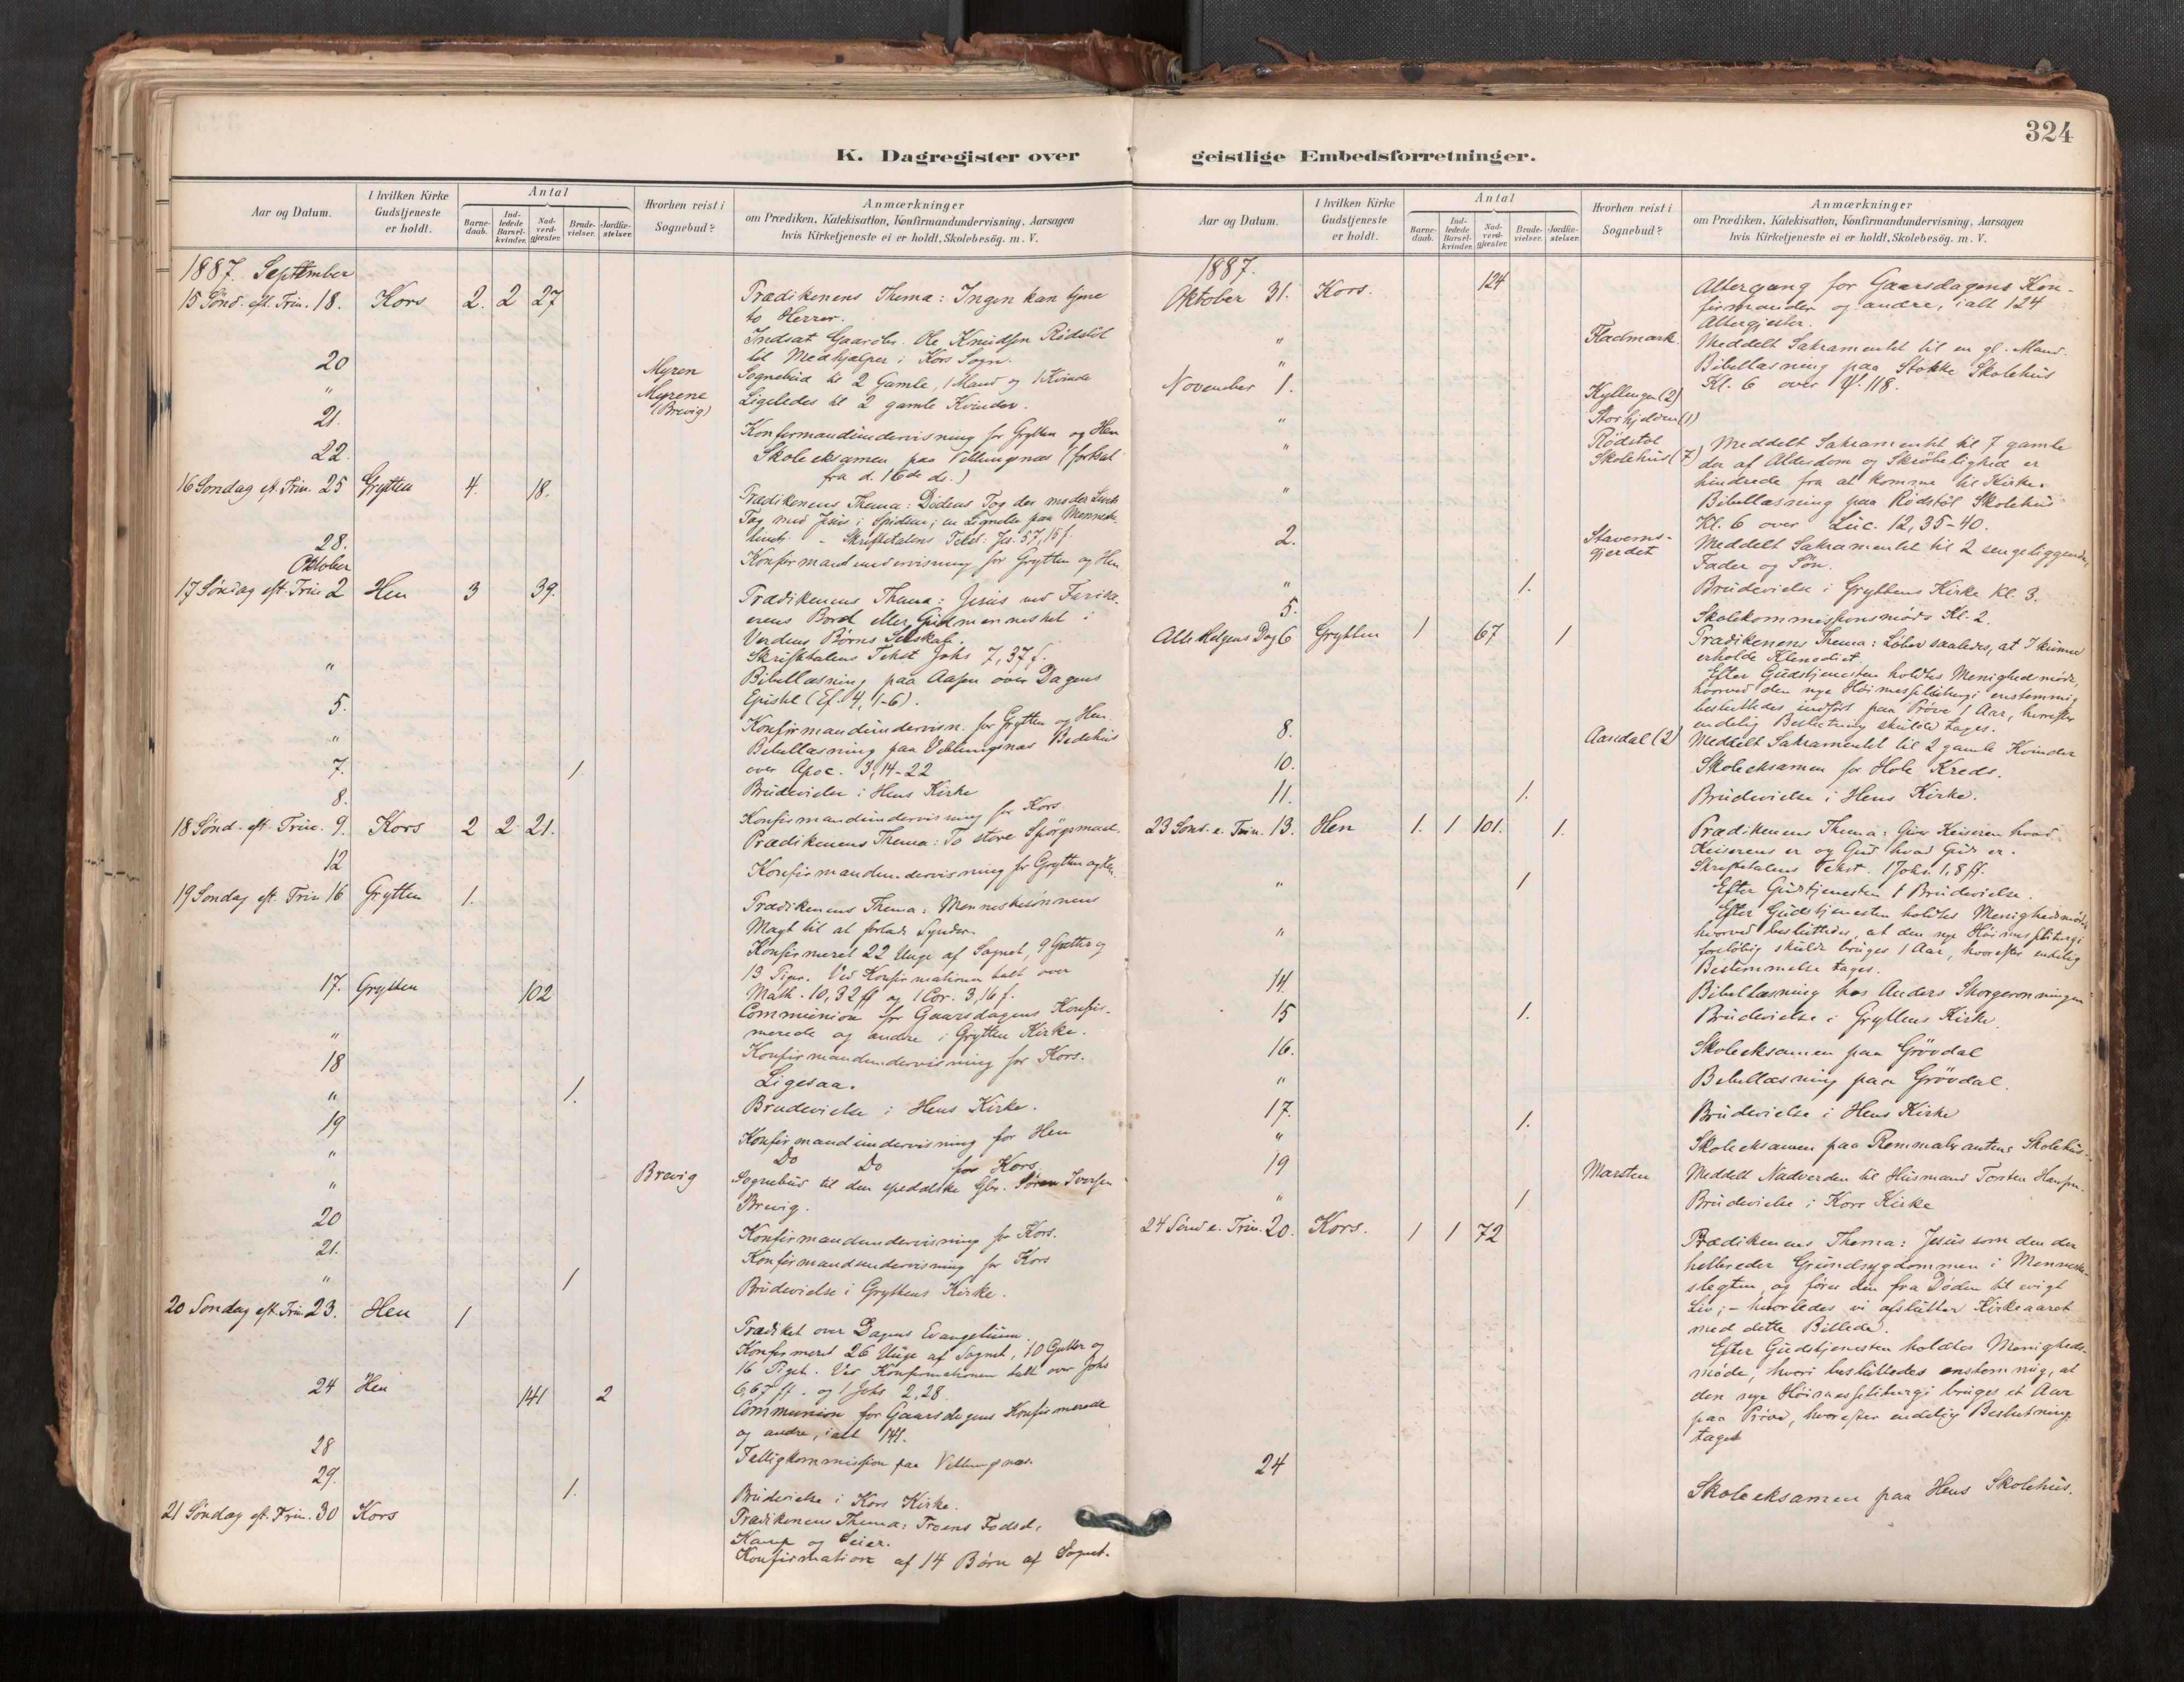 324
K. Dagregister over
Aar og Datum.
I hvilken Kirke Gudstjeneste er holdt.
Antal
Barne-daab.
Ind-ledede Barsel-kvinder.
Nad-verd-gjester.
Brude-vielser.
Jordfæ-stelser.
Hvorhen reist i Sognebud?
Anmærkninger
om Prædiken, Katekisation, Konfirmandundervisning, Aarsagen
hvis Kirketjeneste ei er holdt, Skolebesög. m. V.
1887. September
15 Sönd. eft. Trin. 18. Kors 2. 2 27 Prædikenens Thema: Ingen kan tjene
to Herrer.
Indsat Gaardbr. Ole Knudsen Rödstöl
til Medhjælper i Kors Sogn.
20 Myren Sognebud til 2 Gamle, 1 Mand og 1 Kvinde
" Myrene (Brevig) Ligeledes til 2 gamle Kvinder.
21. Konfirmandundervisning for Grytten og Hen
22. Skoleeksamen paa Veblungsnæs (fortsat
fra d. 16de ds.)
16 Söndag eft. Trin. 25 Grytten 4. 18. Prædikenens Thema: Dödens Tog der möder Livets
Tog med Jesus i Spidsen; en Lignelse paa Menneske-
livet. - Skriftetalens Tekst: Jes. 57, 15 f.
28. Konfirmandundervisning for Grytten og Hen.
Oktober
17 Söndag eft. Trin 2 Hen 3 39. Prædikenens Thema: Jesus ved Farisæ-
erens Bord eller Gudmennesket i
Verdens Börns Selskab.
Skriftetalens Tekst Johs 7, 37 f.
" Bibellæsning paa Aasen over Dagens
Epistel (Ef. 4, 1-6).
5. Konfirmandundervisn. for Grytten og Hen.
" Bibellæsning paa Veblungsnæs Bedehus
over Apoc. 3, 14-22
7. 1 Brudevielse i Hens Kirke
8. Konfirmandundervisning for Kors
18 Sönd. eft. Trin. 9. Kors 2 2 21. Prædikenens Thema: To store Spörgsmaal.
12 Konfirmandundervisning for Grytten og Hen.
19 Söndag eft. Trin 16 Grytten 1. Prædikenens Thema: Menneskesönnens
Magt til at forlade Synder.
Konfirmeret 22 Unge af Sognet, 9 Gutter og
13 Piger. Ved Konfirmationen talt over
Math. 10, 32 ff og 1 Cor. 3, 16 f.
17. Grytten 102 Communion for Gaarsdagens Konfir-
merede og andre i Grytten Kirke.
" Konfirmandundervisning for Kors.
18 Ligesaa.
" 1. Brudevielse i Hens Kirke.
19 Konfirmandundervisning for Hen
" Do Do for Kors
" Brevig Sognebud til den spedalske Gbr. Sören Iversen
Brevig.
20 Konfirmandundervisning for Kors.
21. Konfirmandundervisning for Kors
" 1 Brudevielse i Gryttens Kirke.
20 Söndag eft. Trin 23. Hen 1 Prædiket over Dagens Evangelium.
Konfirmeret 26 Unge af Sognet, 10 Gutter og
16 Piger. Ved Konfirmationen talt over Johs
6, 67 ff. og 1 Johs 2, 28.
24 Hen 141 2 Communion for Gaarsdagens Konfirmerede
og andre, ialt 141.
28 Fattigkommission paa Veblungsnæs.
29. 1. Brudevielse i Kors Kirke.
21 Söndag eft. Trin. 30 Kors Prædikenens Thema: Troens Födsel,
Kamp og Seier.
Konfirmation af 14 Börn af Sognet.
geistlige Embedsforretninger.
Aar og Datum.
I hvilken Kirke Gudstjeneste er holdt.
Antal
Barne-daab.
Ind-ledede Barsel-kvinder.
Nad-verd-gjester.
Brude-vielser.
Jordfæ-stelser.
Hvorhen reist i Sognebud?
Anmærkninger
om Prædiken, Katekisation, Konfirmandundervisning, Aarsagen
hvis Kirketjeneste ei er holdt, Skolebesög. m. V.
1887.
Oktober 31. Kors. 124 Altergang for Gaarsdagens Kon-
firmander og andre, ialt 124
Altergjester.
" Fladmark. Meddelt Sakramentet til en gl. Mand.
" Bibellæsning paa Stokke Skolehus
Kl. 6 over Ψ. 118.
November 1. Kyllingen (2)
Storhjellen (1)
" Rödstöl
Skolehus (7) Meddelt Sakramentet til 7 gamle
der af Alderdom og Skröbelighed er
hindrede fra at komme til Kirke.
" Bibellæsning paa Rödstöl Skolehus
Kl. 6 over Luc. 12, 35-40.
2. Staverns-
gjerdet Meddelt Sakramentet til 2 sengeliggende,
Fader og Sön.
" 1. Brudevielse i Gryttens Kirke Kl. 3.
5. Skolekommissionsmöde Kl. 2.
Alle Helgens Dag 6 Grytten 1 67 1 Prædikenens Thema: Löber saaledes, at I kunne
erholde Klenodiet.
Efter Gudstjenesten holdtes Menighedsmöde,
hvorved den nye Höimesseliturgi enstemmig
besluttedes indfört paa Pröve 1 Aar, hvorefter
endelig Beslutning skulde tages.
8. Aandal (2) Meddelt Sakramentet til 2 gamle Kvinder
10. Skoleeksamen for Hole Kreds.
11. 1. Brudevielse i Hens Kirke.
23 Sönd. e. Trin. 13. Hen 1. 1 101. 1. Prædikenens Thema: Giver Keiseren hvad
Keiserens er og Gud hvad Guds er.
Skriftetalens Tekst. 1 Johs. 1, 8 ff.
" 1 Efter Gudstjenesten 1 Brudevielse.
" Efter Gudstjenesten holdtes Menighedsmöde
hvorved besluttedes, at den nye Höimesseliturgi
forelöbig skulde bruges 1 Aar, hvorefter endelig
Bestemmelse tages.
14. Bibellæsning hos Anders Skorgerönningen
15 1. Brudevielse i Gryttens Kirke.
16. Skoleeksamen paa Grövdal
" Bibellæsning paa Grövdal.
17. 1. Brudevielse i Hens Kirke
" Skoleeksamen paa Skolehus.
19 Marsten Meddelt Nadverden til Husmand Torsten Hansen.
" 1 Brudevielse i Kors Kirke
24 Sönd e. Trin. 20. Kors. 1 1 72 Prædikenens Thema: Jesus som den der
helbreder Grundsygdommen i Menneske-
slegten og förer den fra Döden til evigt
Liv; - hvorledes vi afslutter Kirkeaaret
med dette Billede.
Efter Gudstjenesten holdtes Menigheds-
möde, hvori besluttedes enstemmig, at
den nye Höimesseliturgi bruges et Aar
paa Pröve, hvorefter endelig Beslutning
tages
24 Skoleeksamen paa Hens Skolehus.